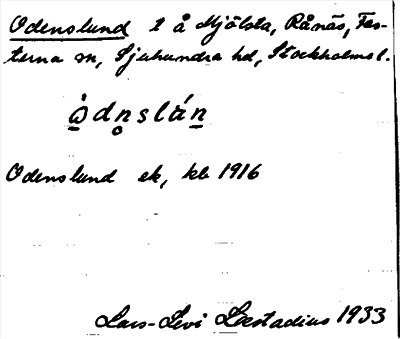 Odenslund 1 å Mjölsta, Rånäs, Fas-
terna sn, Sjuhundra hd, Stockholms l.
ò̱dn̥sláṉ
Odenslund ek, kb 1916
Lars-Levi Læstadius 1933